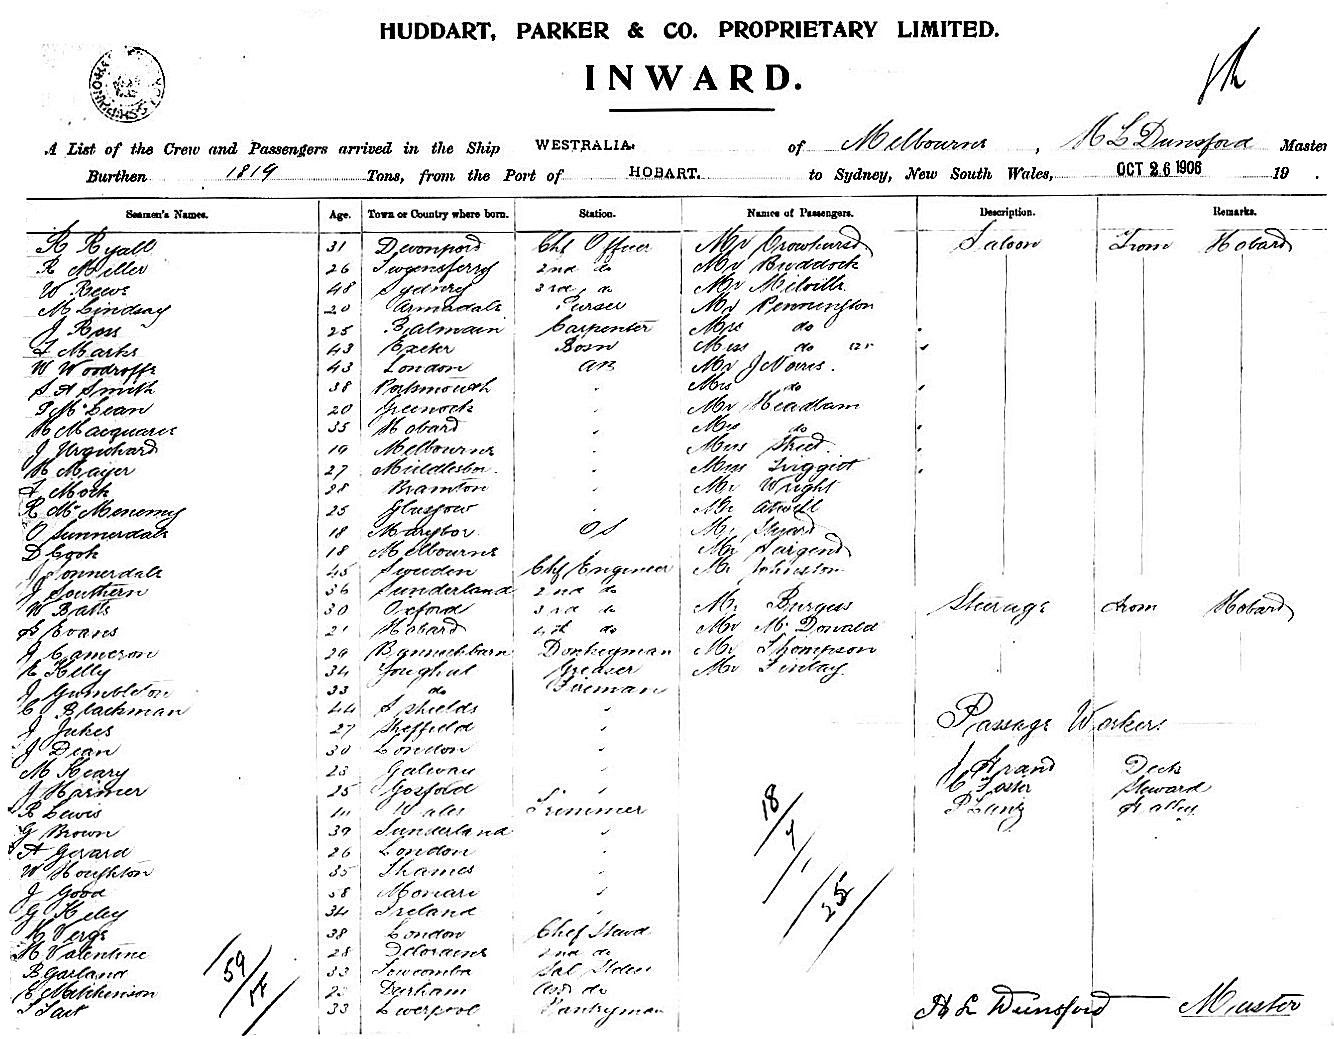 HUDDART, PARKER & CO. PROPRIETARY LIMITED.
INWARD.
A List of the Crew and Passengers arrived in the Ship WESTRALIA. of Melbourne, Dunsford Master
Burthen 1819 Tons, from the Port of HOBART. to Sydney, New South Wales, OCT 26 1906 19 .
Seamen's Names. Age. Town or Country where born. Station. Names of Passengers. Description. Remarks.
R Ryall 31 Devonpord Chf Officer Mr Crowhurst Saloon From Hobard
R Miller 26 2nd do Mr Bruddock
W Reeve 48 Sydney 3rd do Mr Melville
M Lindsay 20 Armadale Purser Mr Pennington
J Ross 25 Balmain Carpenter Mrs do
Marks 43 Exeter Bosn Miss do
W Woodroffe 43 London AB Mr J Norris.
S A Smith 38 Portsmouth Mrs do
McLean 20 Greenock Mr Headlam
H Macquarie 35 Hobard do
J Urquhard 19 Melbourne Miss Street
H Mayer 27 Middlesbor. Miss
Mock 28 Bramton Mr Wright
R McMenemy 25 Glasgow Mr Atwill
O Sunnerdale 18 Marybor OS Mr
D Cook 18 Melbourne Mr Sargend
J Sonnerdale 45 Sweden Chf Engineer Mr Johnston
J Southern 36 Sunderland 2nd do
W Batts 30 Oxford 3rd do Mr Burgess Steerage from Hobard
Evans 21 Hobard 4th do Mr McDonald
J Cameron 29 Bannockbarn Donkeyman Mr Thompson
Kelly 34 Youghal Greaser Mr Finlay
J Gumbleton 33 do Fireman
C Blackman 44 S Shields
J Jukes 27 Sheffield Passage Workers
J Dean 30 London
M Keary 23 Galway Strand Deck
J Harmer 25 Gosford C Foster Steward
R Lewis Wales Trimmer P Lantz Galley
G Brown 39 Sunderland
A Gerard 26 London
W Houghton 35 Thames
J Good 58
G Kiley 34 Ireland
H Verge 38 London Chef Stewd
H Valentine 28 Deloraine 2nd do
B Garland 33 Towoomba Sal
Hutchinson 23 Durham Asst do
Tait 33 Liverpool Pantryman
18
25
59
Dunsford Master